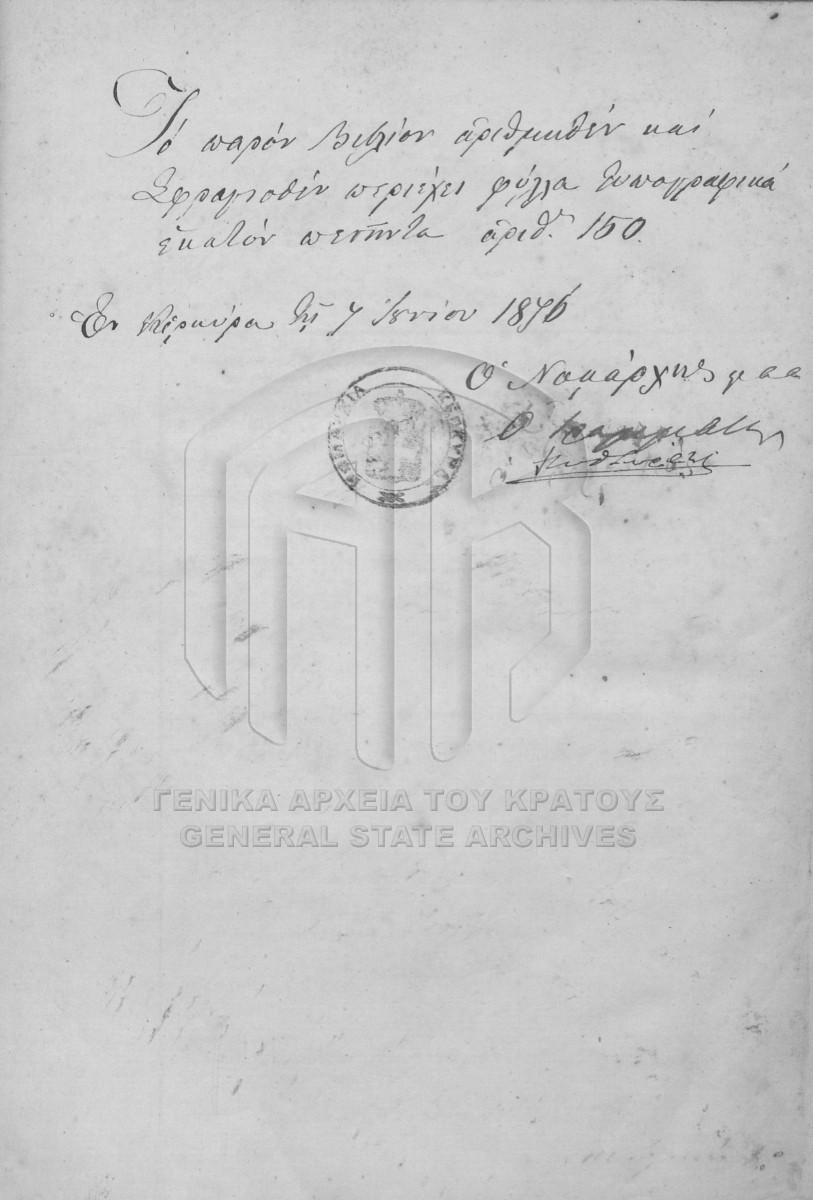 Τό παρόν Βιβλίον ἀριθμηθέν καί
Σφραγισθέν περιέχει φύλλα τυπογραφικά
ἑκατόν πεντῆντα ἀριθ. 150.
Ἐν Κερκύρα τῇ 7 Ἰουνίου 1876
Ὁ Νομάρχης
Ο
ΝΟΜΑΡΧΙΑ ΚΕΡΚΥΡΑΣ
ΓΕΝΙΚΑ ΑΡΧΕΙΑ ΤΟΥ ΚΡΑΤΟΥΣ
GENERAL STATE ARCHIVES